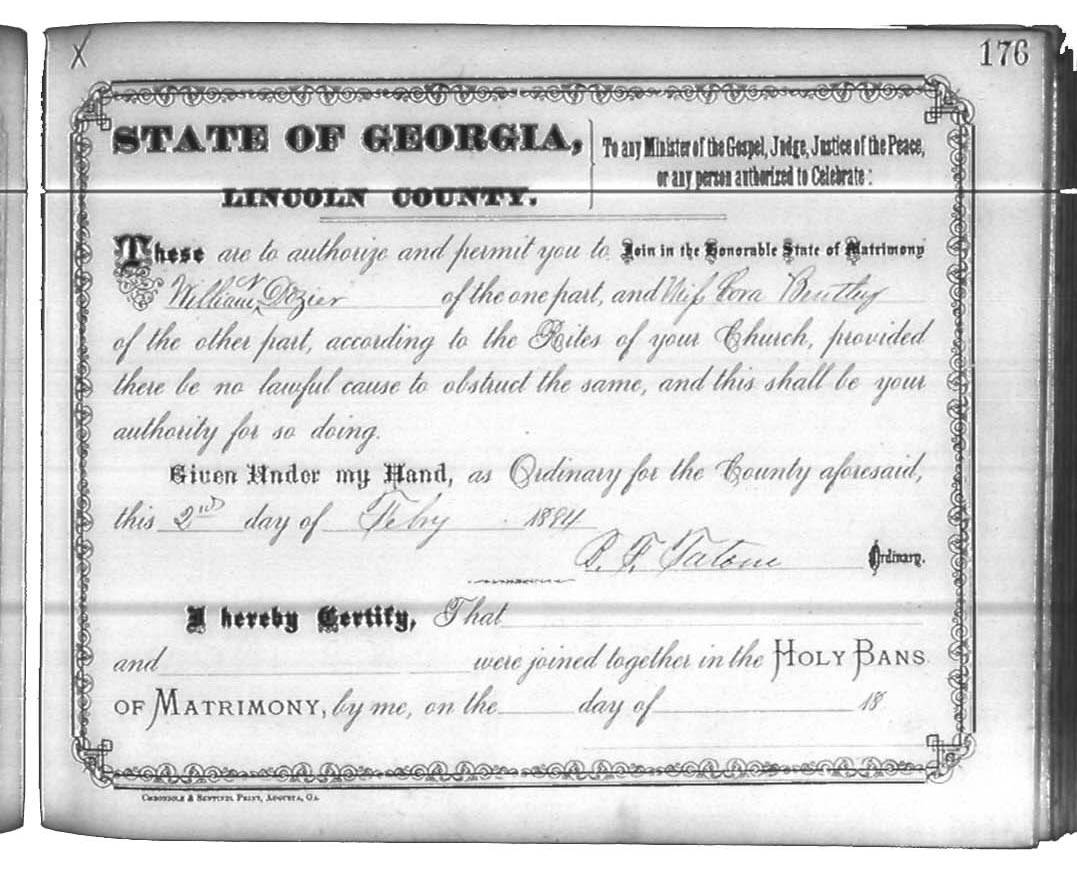 X
176
STATE OF GEORGIA,
LINCOLN COUNTY.
To any Minister of the Gospel, Judge, Justice of the Peace,
or any person authorized to Celebrate:
These are to authorize and permit you to Join in the Honorable State of Matrimony
William N Dozier of the one part, and Miss Cora Bentley
of the other part, according to the Rites of your Church, provided
there be no lawful cause to obstruct the same, and this shall be your
authority for so doing.
Given Under my Hand, as Ordinary for the County aforesaid,
this 2nd day of Feby 1894
B. F. Tatom Ordinary.
I hereby Certify, That
and were joined together in the HOLY BANS
OF MATRIMONY, by me, on the day of 18
CHRONICLE & SENTINEL PRINT, AUGUSTA, GA.